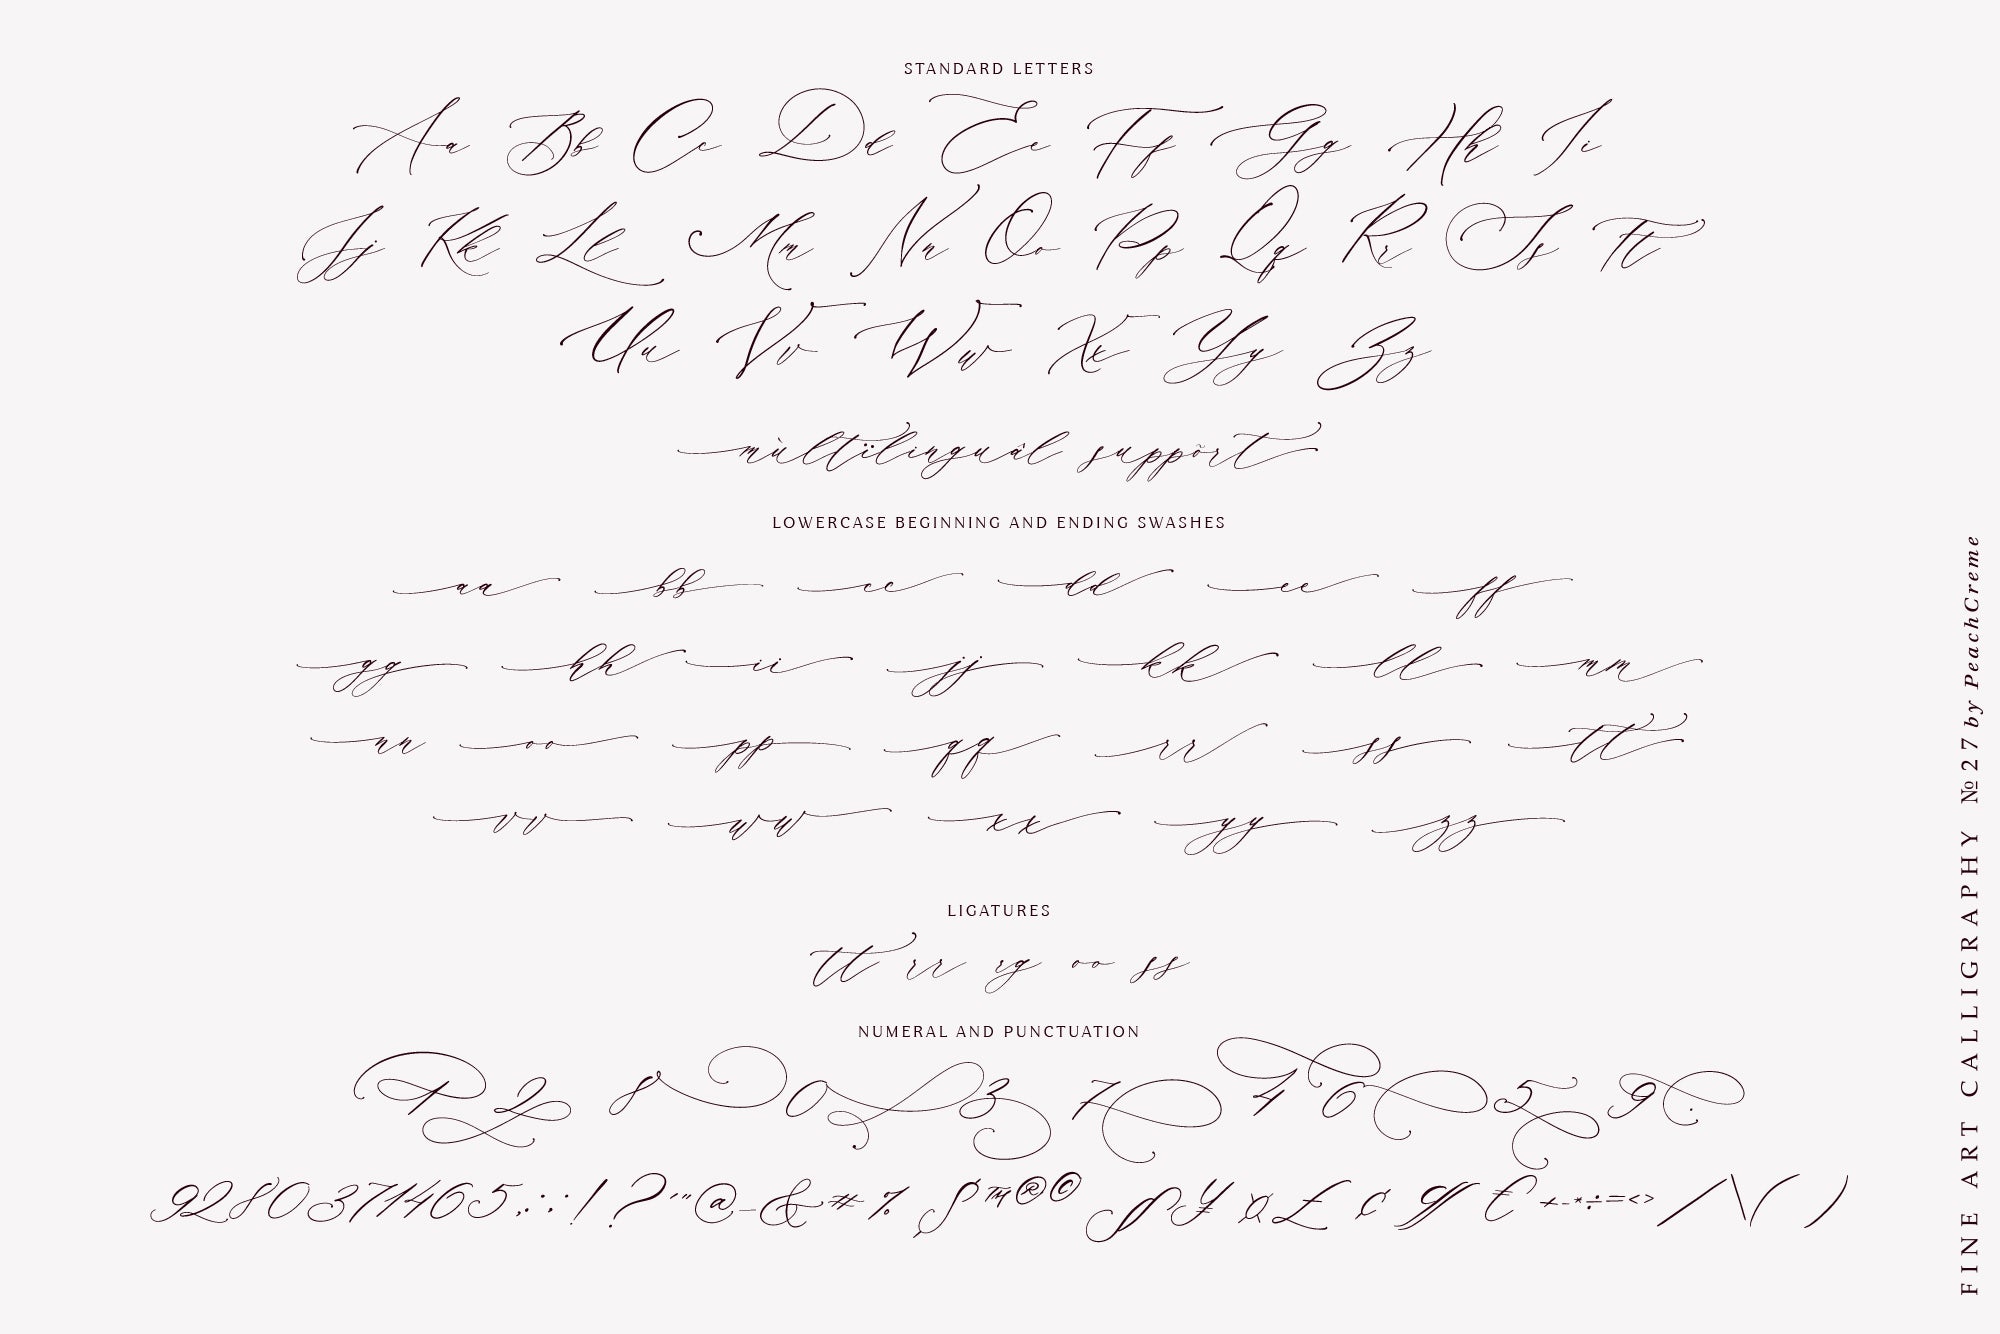 STANDARD LETTERS
Aa Bb Cc Dd Ee Ff Gg Hh Ii
Jj Kk Ll Mm Nn Oo Pp Qq Rr Ss Tt
Uu Vv Ww Xx Yy Zz
mùltïlinguâl suppõrt
LOWERCASE BEGINNING AND ENDING SWASHES
aa bb cc dd ee ff
gg hh ii jj kk ll mm
nn oo pp qq rr ss tt
vv ww xx yy zz
LIGATURES
tt rr rg oo ss
NUMERAL AND PUNCTUATION
1 2 8 0 3 7 4 6 5 9 .
9280371465,.:;! ?'"@_&#% ™®© ¥¤£¢ €+-*÷=<>/\()
FINE ART CALLIGRAPHY №27 by PeachCreme